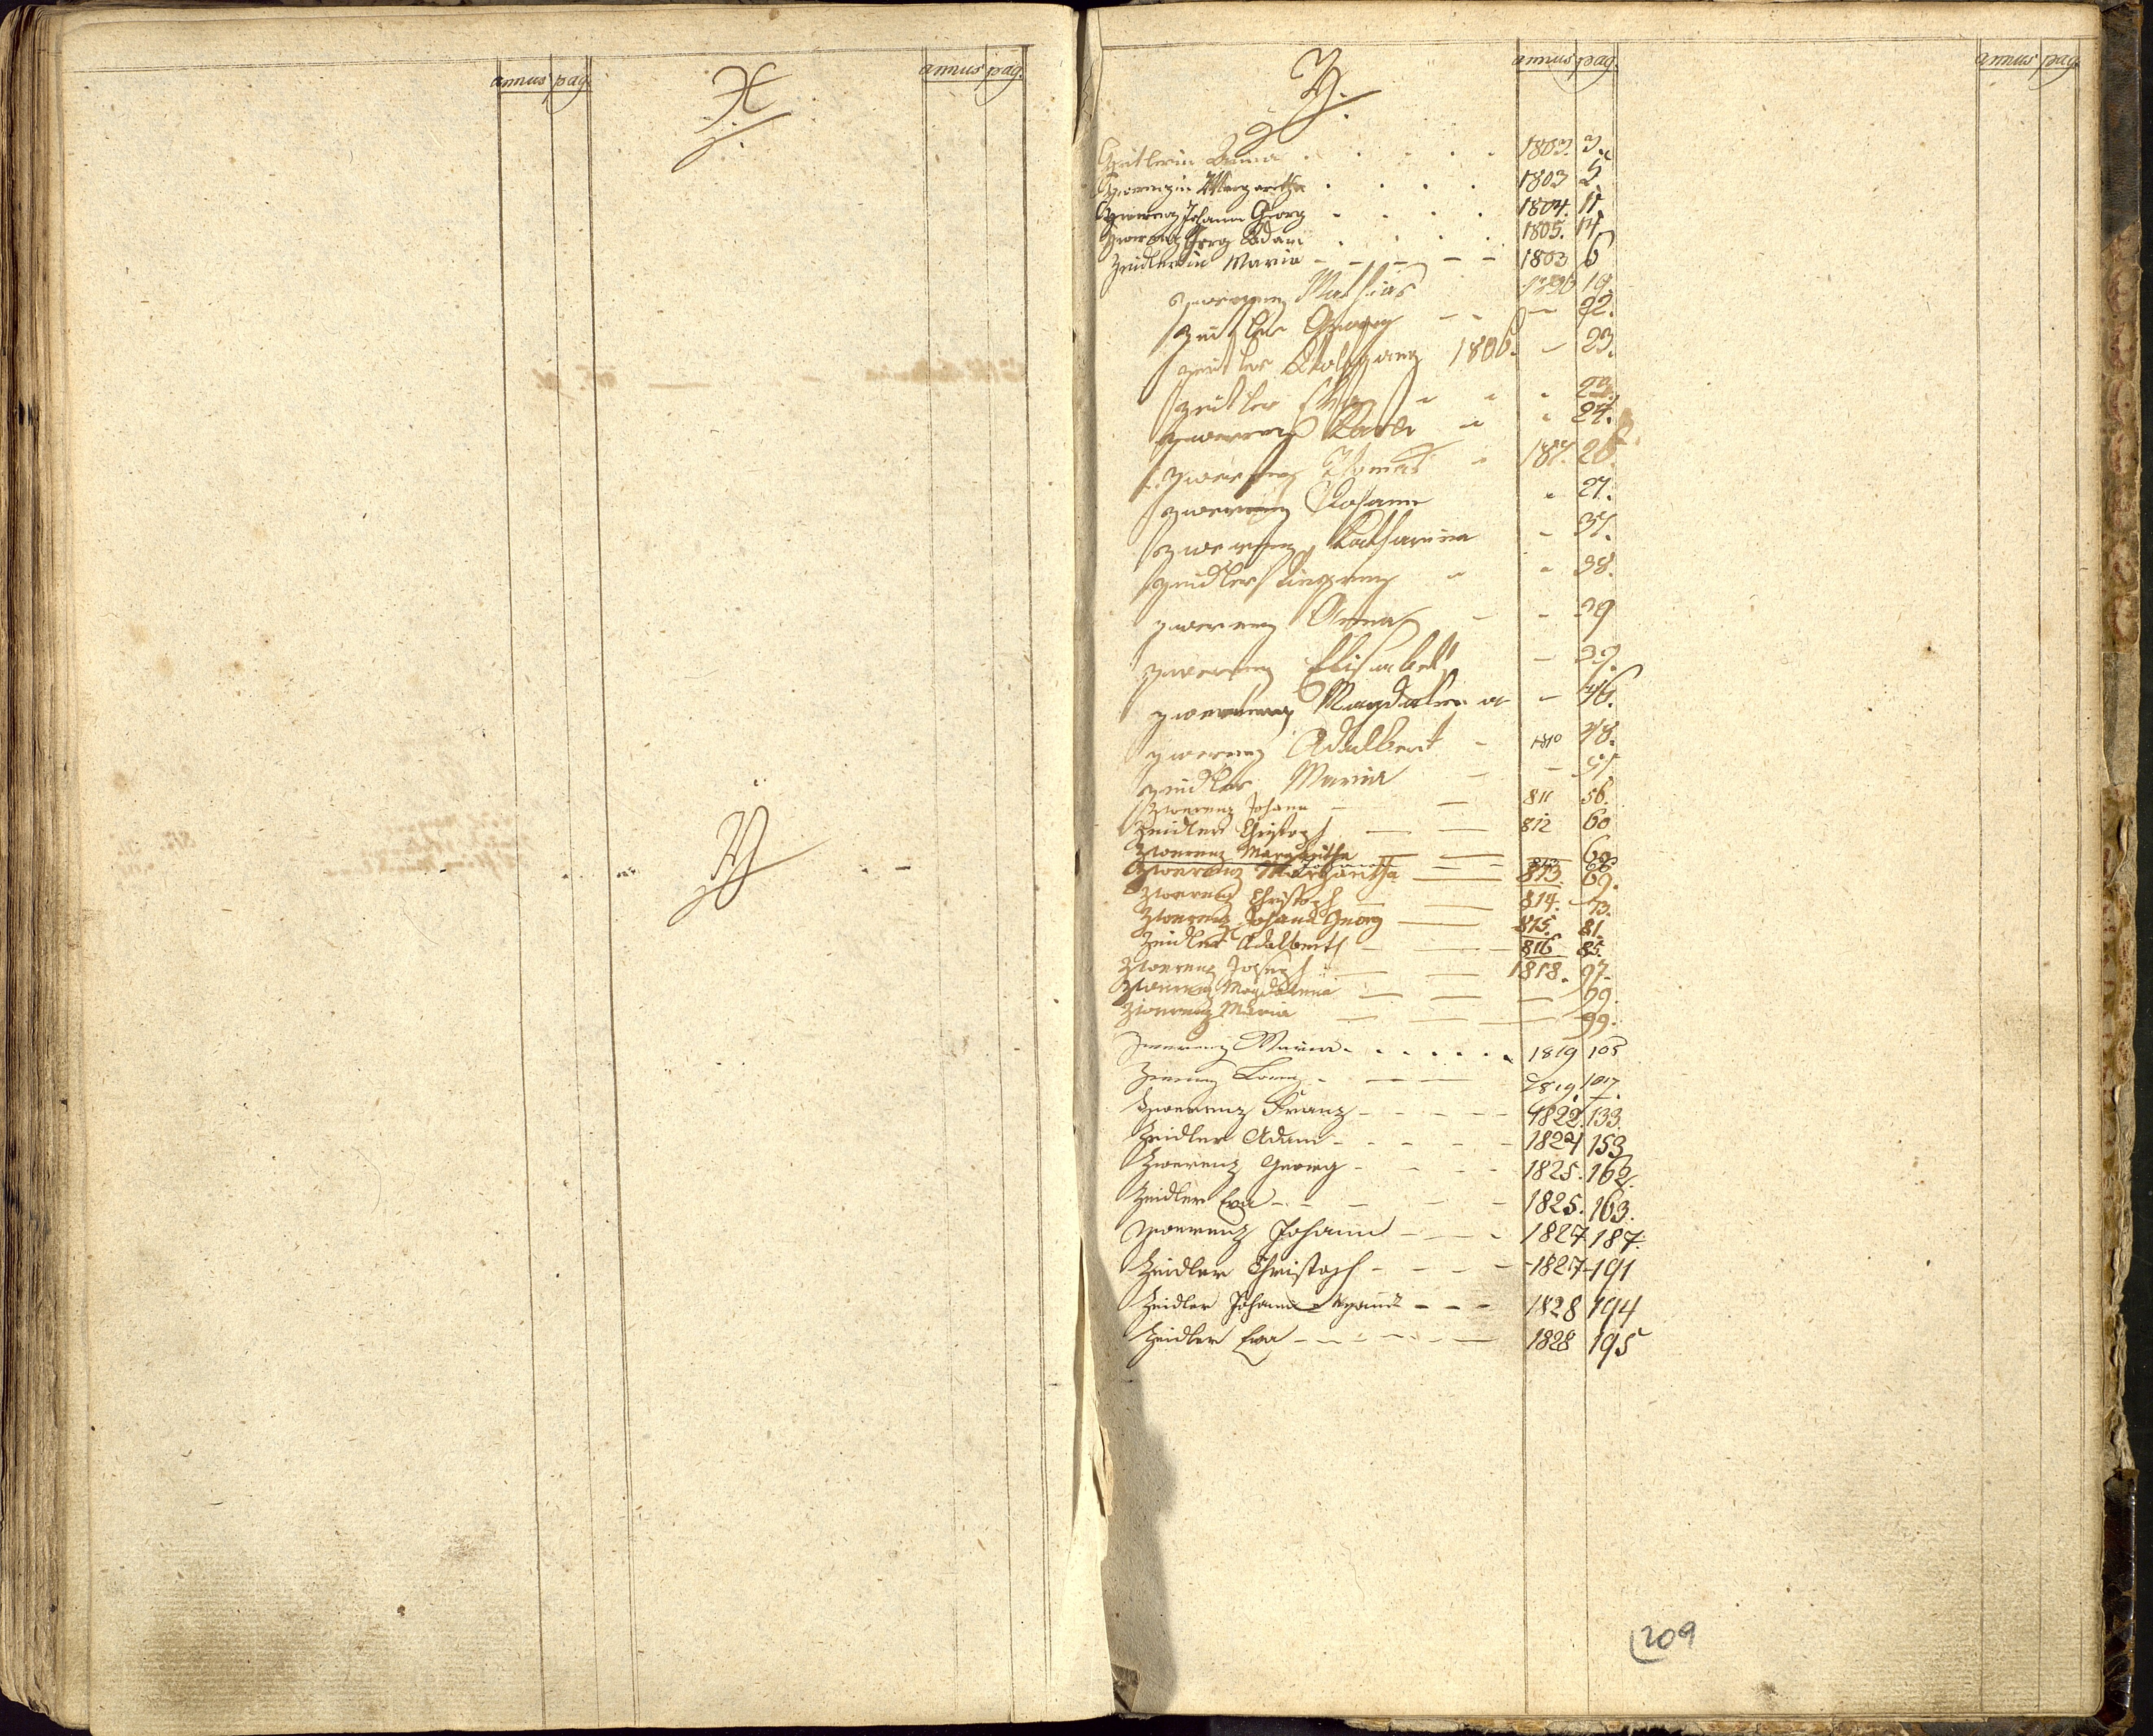 annus pag.
X.
annus pag.
Y
Z.
annus pag.
annus pag.
Zeitlerin Anna 1803. 3.
Zwerenzin Margaretha 1803 5
Zwerenz Johann Georg 1804. 11
Zwerenz Georg Adam 1805. 14
Zeidlerin Maria 1803 6
Zwerenz Mathias 19.
Zeitler Georg - 22.
Zeitler Wolfgang 1806. - 23.
Zeitler Eva
Zwerenz 24.
Zwerenz Thomas 187. 26.
Zwerenz Johann 27.
Zwerenz Katharina - 37.
Zeidler 38.
Zwerenz Anna - 39
Zwerenz Elisabeth - 39.
Zwerenz Magdalena - 46.
Zwerenz Adalbert 1810 48.
Zeidler Maria -
Zwerenz Johann 811 56.
Zeidler Christoph 812 60
Zwerenz Margaretha
Zwerenz Margaretha 813 69.
Zwerenz Christoph 814. 73.
Zwerenz Johann Georg 815. 81.
Zeidler Adalbert 816 85.
Zwerenz Joseph 1818. 97.
Zwerenz Magdalena 99.
Zwerenz Maria 99.
Zwerenz Maria 1819 105
Zwerenz 1819. 107.
Zwerenz Franz 1822. 133.
Zeidler Adam 1824 153
Zwerenz Georg 1825. 162.
Zeidler Eva 1825. 163.
Zwerenz Johann 1827 187.
Zeidler Christoph 1827 191
Zeidler Johann 1828 194
Zeidler Eva 1828 195
209